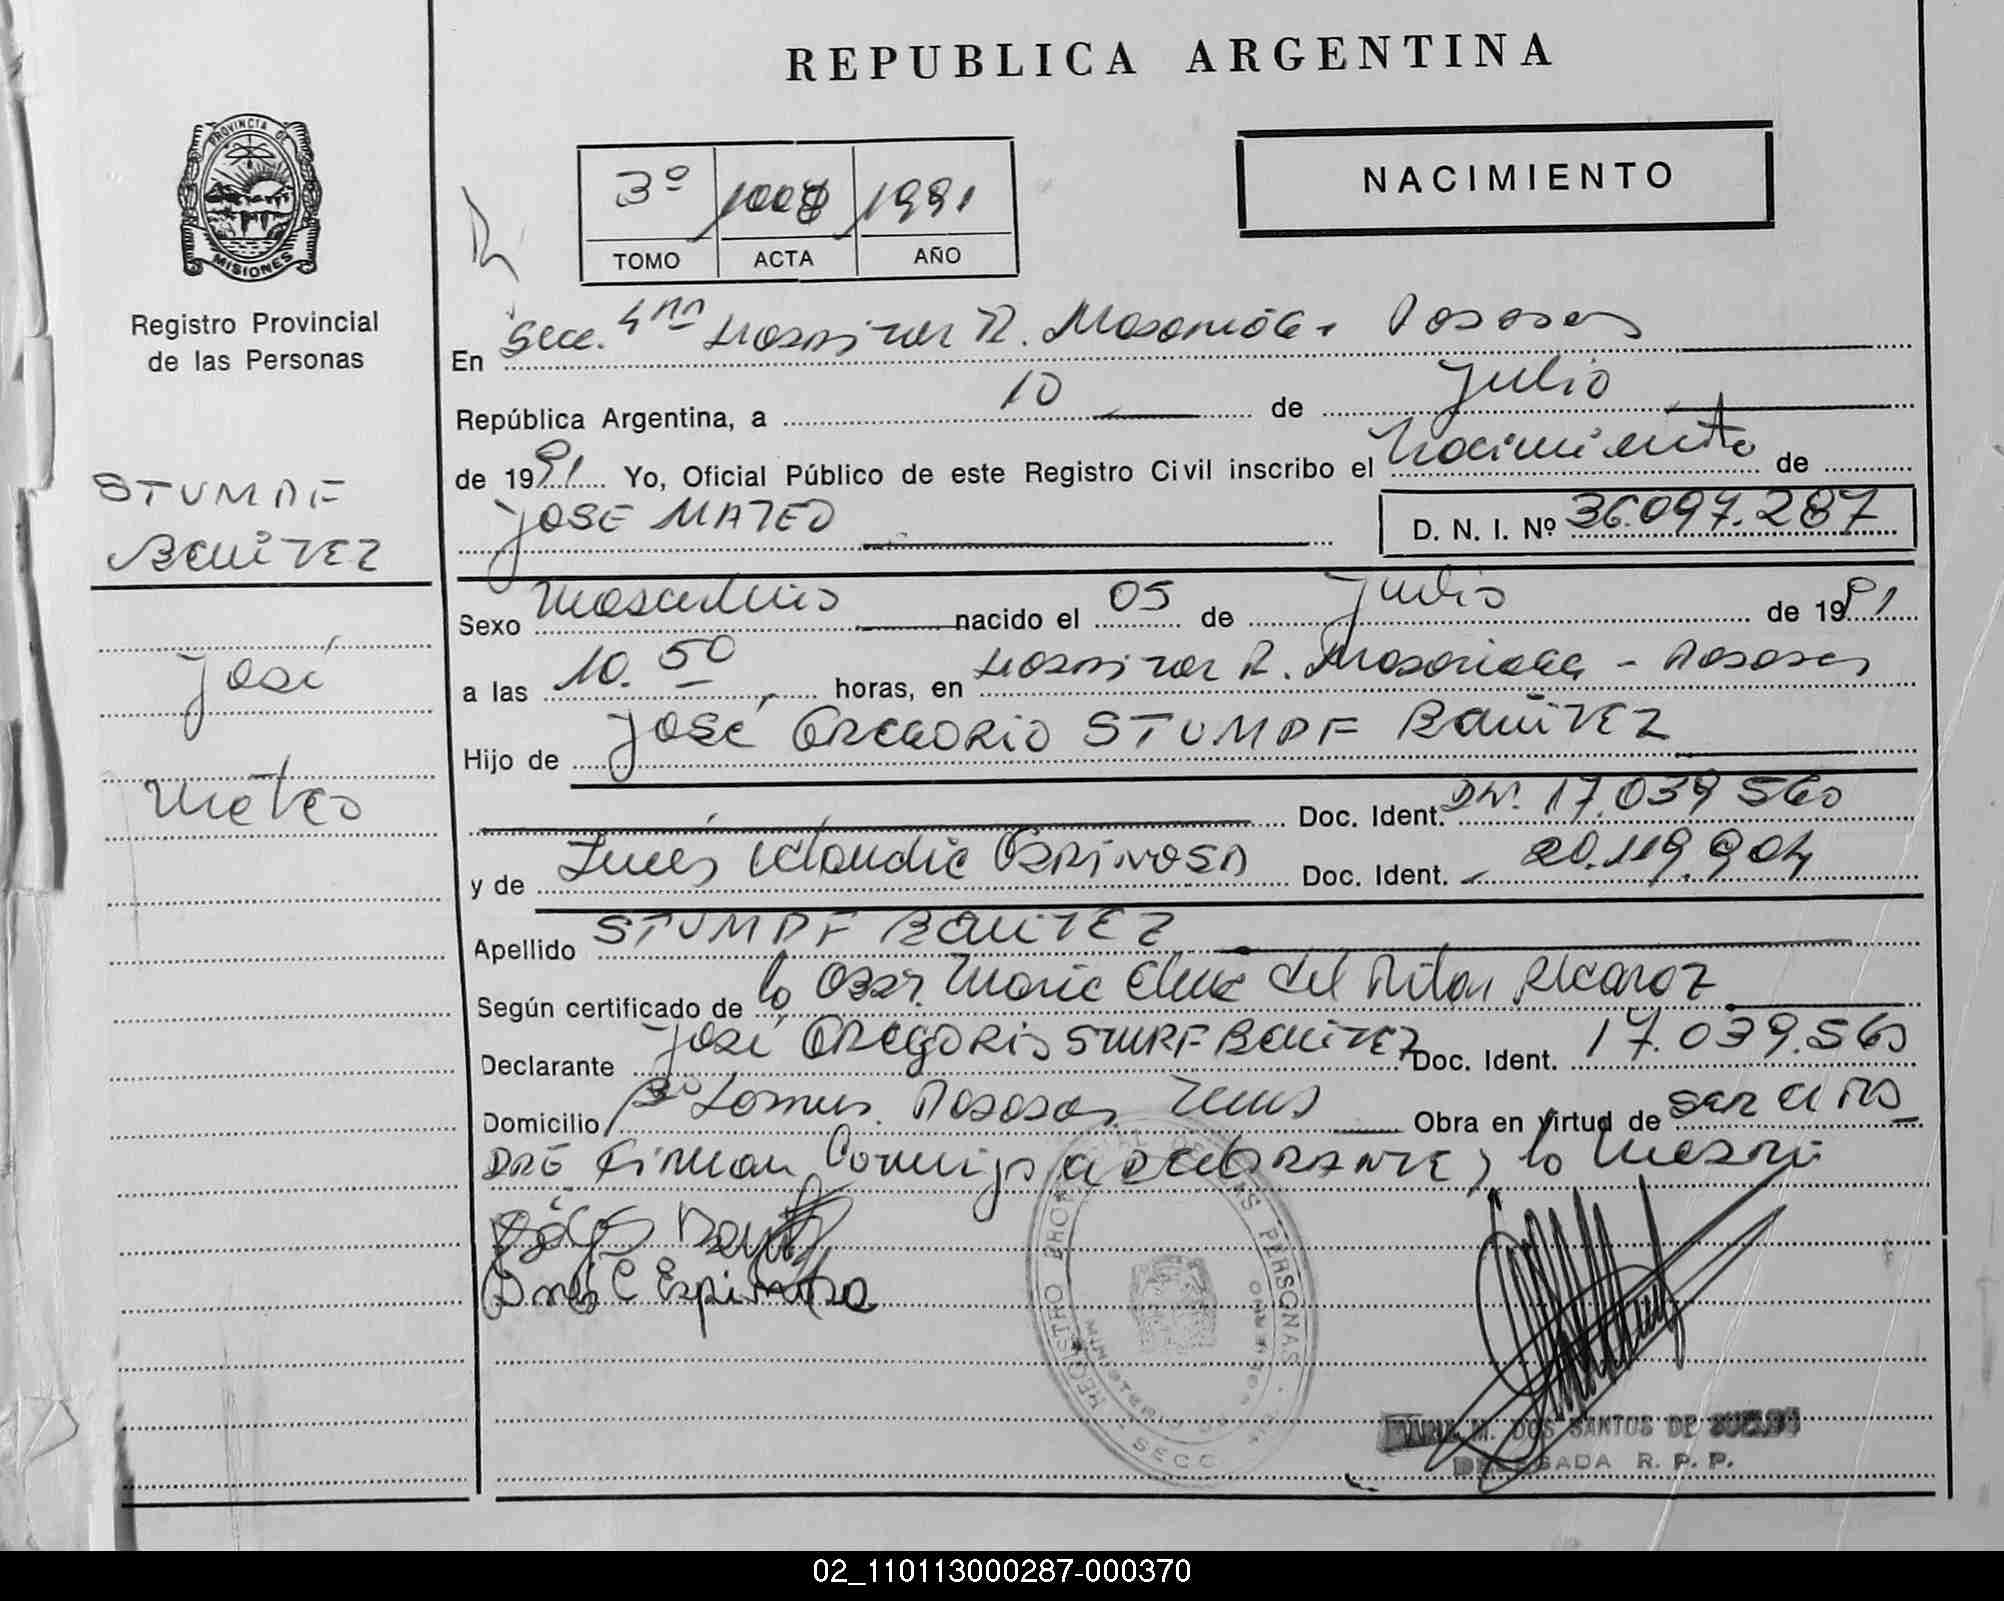 REPUBLICA ARGENTINA
PROVINCIA DE
MISIONES
Registro Provincial
de las Personas
NACIMIENTO
3º 1991
TOMO ACTA AÑO
En Secc. 4ta Hospital R. Madariaga - Posadas
República Argentina, a 10 de Julio
de 1991 Yo, Oficial Público de este Registro Civil inscribo el Nacimiento de
JOSE MATEO
D. N. I. Nº 36.097.287
STUMPF
BENITEZ
José
Mateo
Sexo Masculino nacido el 05 de Julio de 1991
a las 10.50 horas, en Hospital R. Madariaga - Posadas
Hijo de José GREGORIO STUMPF BENITEZ
Doc. Ident. DNI. 17.039.560
y de Inés Claudia ESPINOSA Doc. Ident. 20.119.904
Apellido STUMPF BENITEZ
Según certificado de la Obst. María Elena del Pilar Alcaraz
Declarante José GREGORIO STUMPF BENITEZ Doc. Ident. 17.039.560
Domicilio Bº Posadas Mnes Obra en virtud de ser el PA
DRE firman Conmigo el DECLARANTE y la Madre
Inés C Espinosa
REGISTRO PROVINCIAL DE LAS PERSONAS
MINISTERIO DE GOBIERNO
SECC
MARIA M. DOS SANTOS DE
DELEGADA R. P. P.
02_110113000287-000370